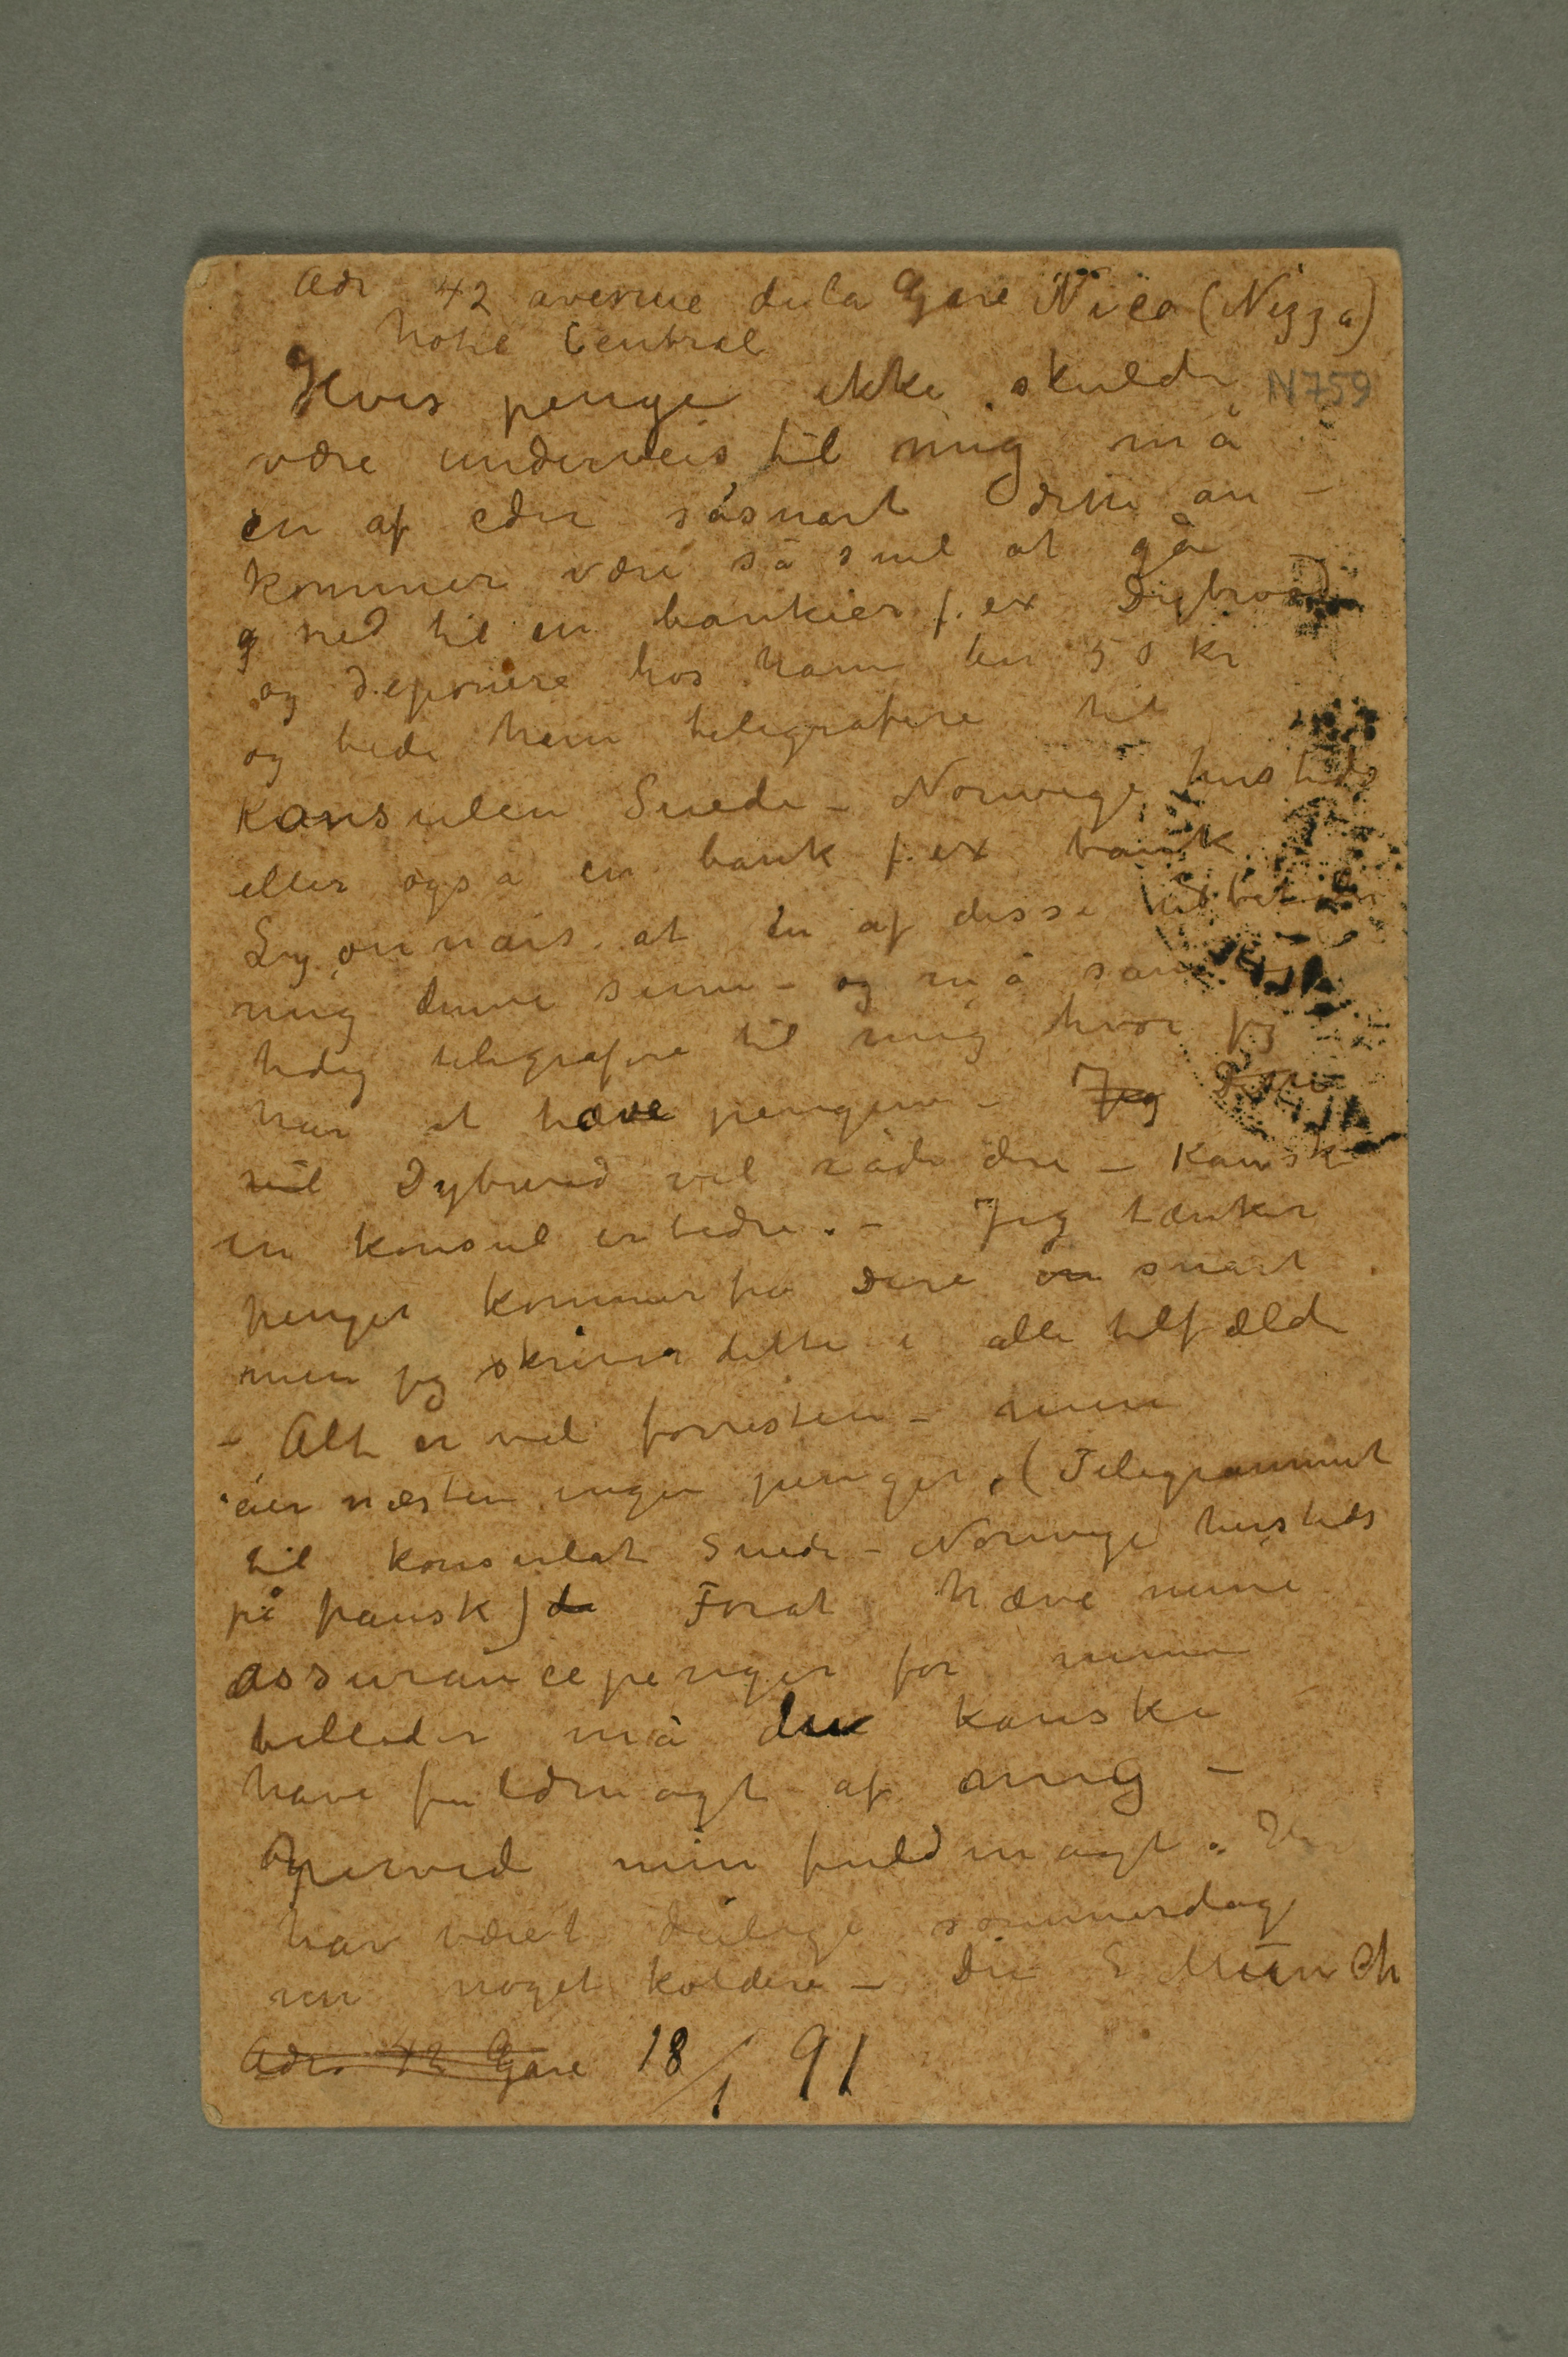 Adr 42 avenue de la Gare Nice (Nizza)
hotel Central
Hvis penge ikke skulde
N759
være underveis til mig må
en af eder såsnart dette an-
kommer være så snil at gå
g ned til en bankier f. ex Dybwad
og deponere hos ham en 50 kr
og bede ham telegrafere til
konsulen Suede-Norwege hersteds
eller også en bank f. ex bank
Lyonnais at en af disse udbetaler
mig denne sum- og må sam
tidig telegrafere til mig hvor jeg
har at hæve pengene- Jeg
vil Dybwad vel råde dere - Kanske
en konsul er bedre. - Jeg tænker
penger kommer fra Dere snart
men jeg skriver dette i alle tilfælde
- Alt er vel forresten - men
eier næsten ingen penger. (Telegrammet
til konsulat Suede-Norwege hersteds
på fransk) Forat hæve mine
assurancepenger for mine
billeder må du kanske
have fuldmagt af mig -
Herved min fuldmagt.
har været deilige sommerdage
nu noget koldere - Din E Munch
Adr. 42 Gare 18/1 91